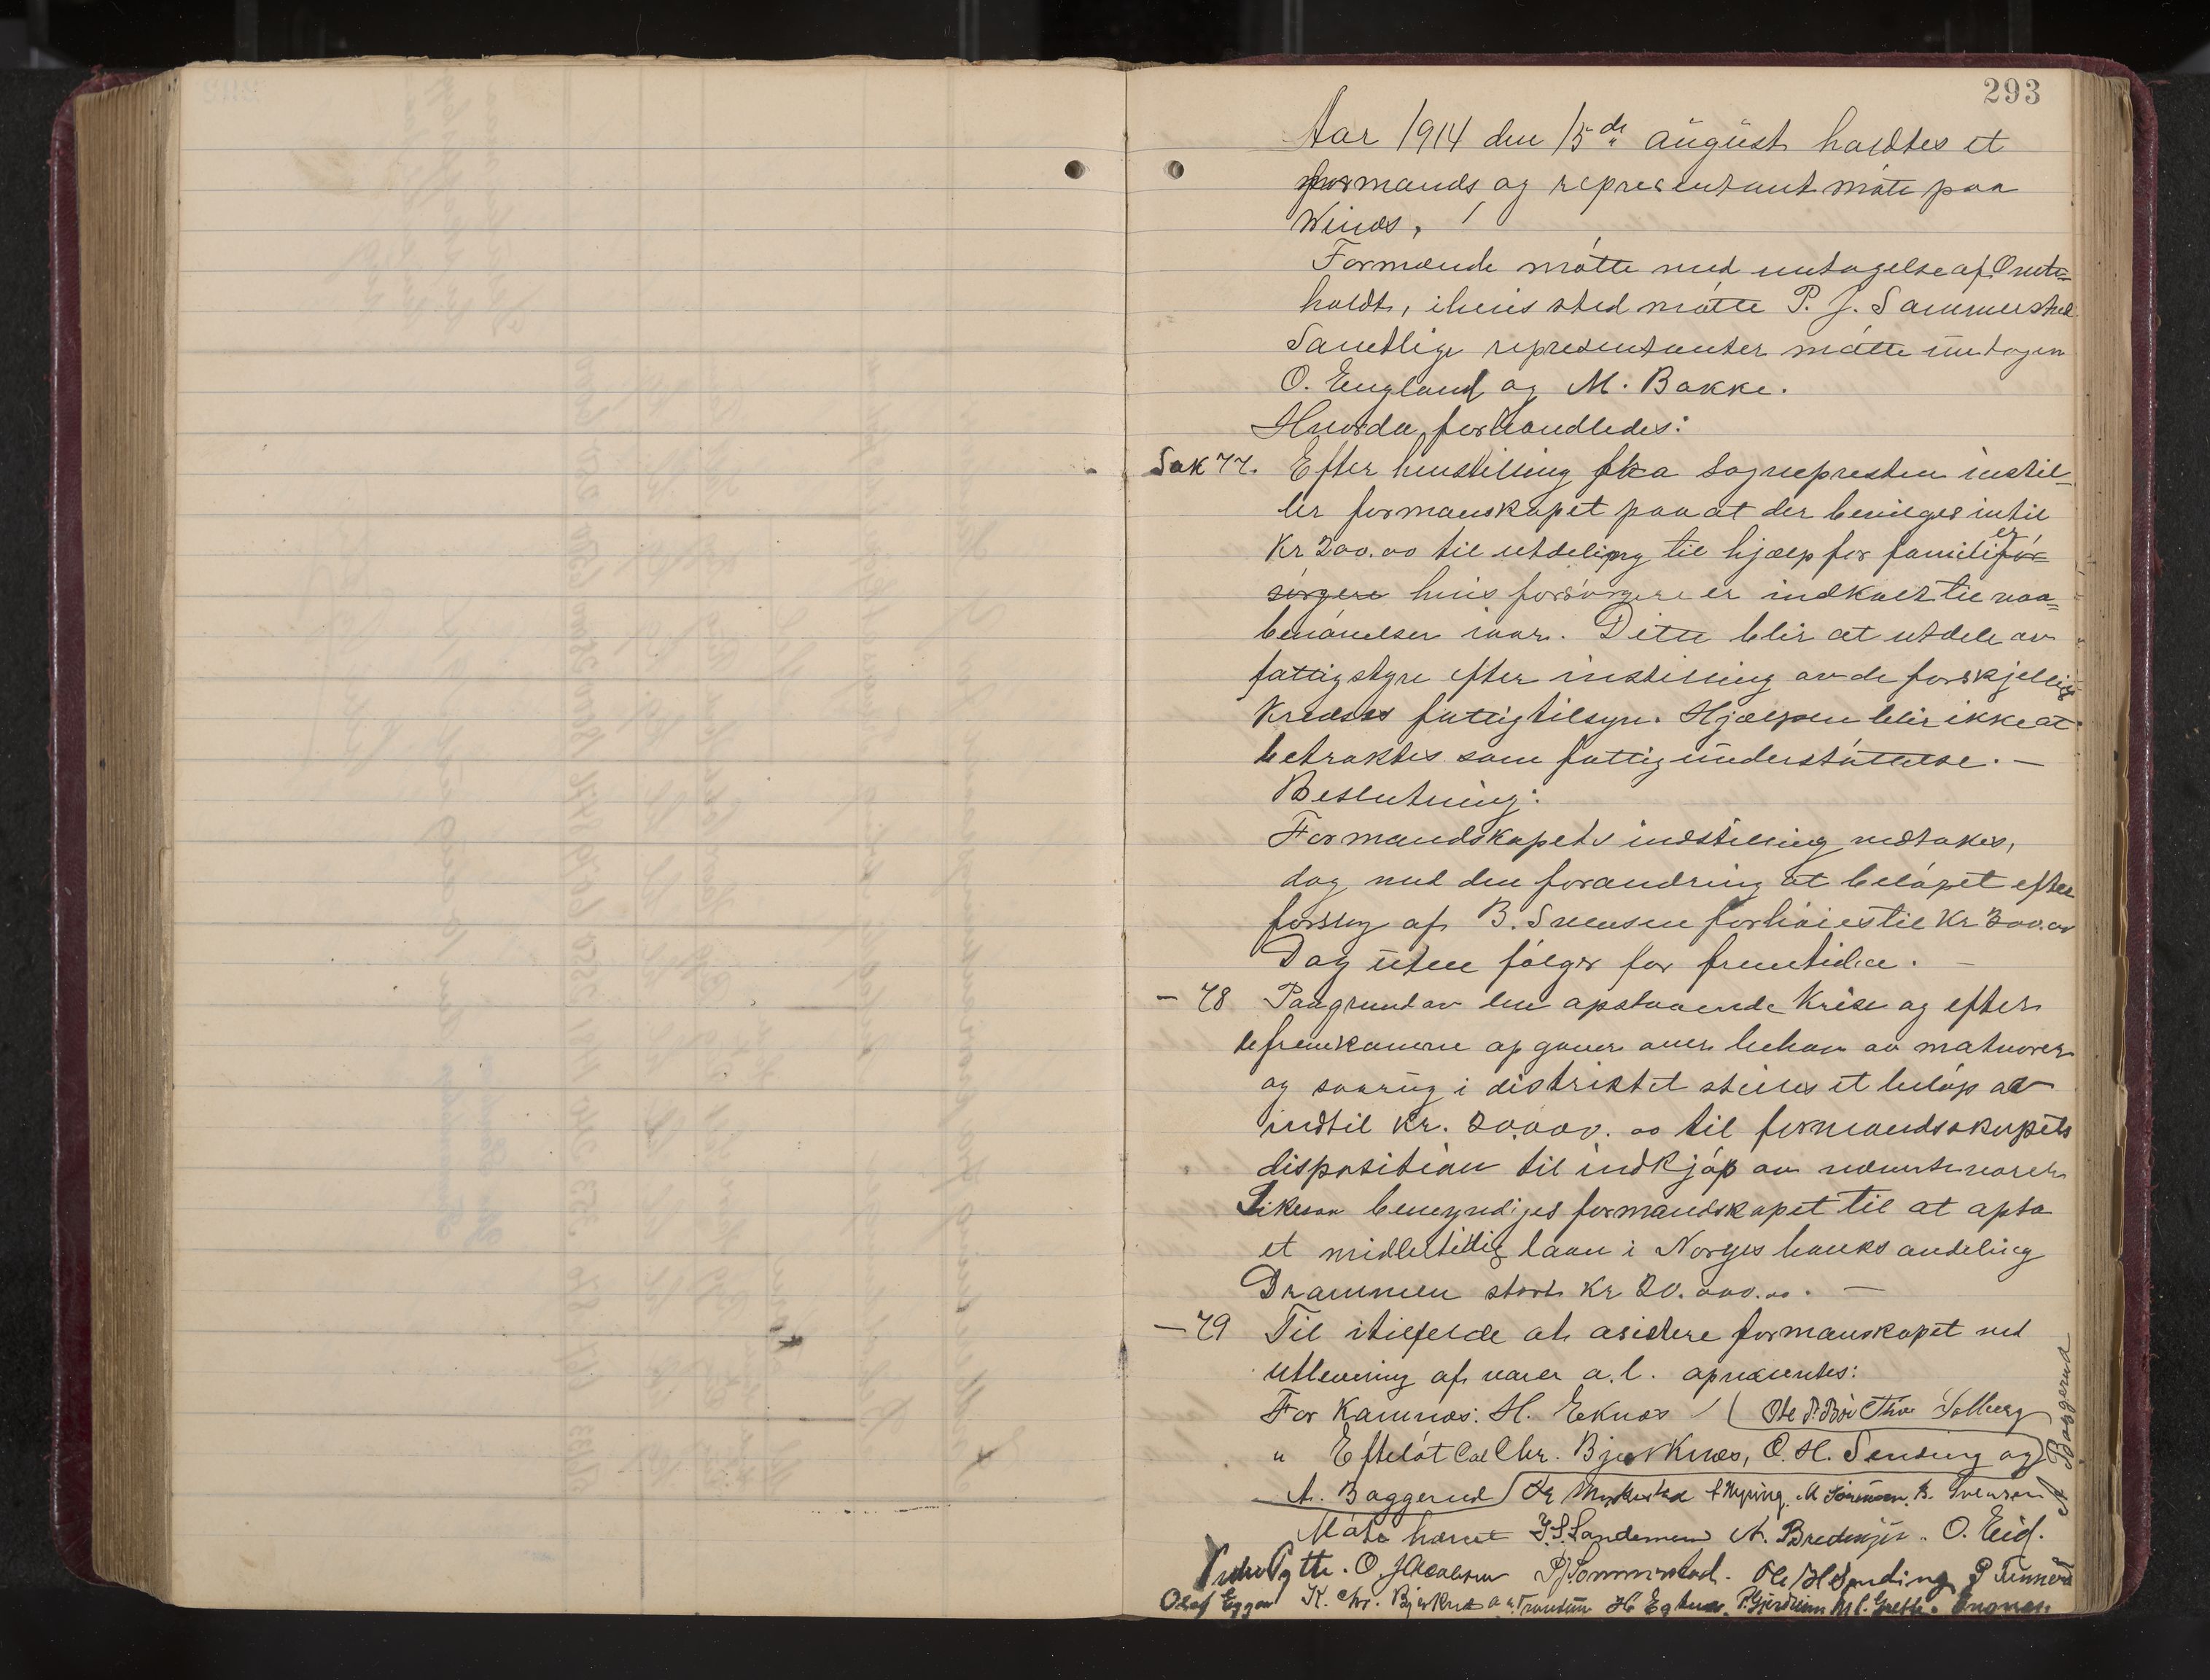 293
Aar 1914 den 15de august holdtes et
formands og representantmøte paa
Winæs,
Formænde møtte med untagelse af Omte=
holdt, ihvis sted møtte P. J. Sammerstad
Samtlige representanter møtte untagen
O. Englund og M. Bakke.
Hvorda forhandledes:
Sak 77. Efter henstilling fra sognepresten instil-
ler formanskapet paa at der bevilges intil
Kr 200.00 til utdeling til hjælp for familier för=
sörgere hvis forsörgere er indkalt til vaa=
benövelser iaar. Dette blir at utdele av
fattigstyre efter instilling av de forskjellige
Kredses fattigtilsyn. Hjælpen blir ikke at
betraktes som fattigunderstøttelse. —
Beslutning:
Formandskapets indstilling vedtakes,
dog med den forandring at beløpet efter
forslag af B. Svensen forhöies til Kr 300.00
Dog uten fölger for fremtiden. —
— 78 Paa grund av den opstaaende Krise og efter
de fremkomne opgaver over behov av matvorer
og saakorn i distriktet stilles et beløp av
indtil Kr. 20.000.00 til formandsskapets
disposition til indkjøp av nævntevorer
Likesaa bemyndiges formandskapet til at opta
et midlertidig laan i Norges banks avdeling
Drammen stort Kr 20.000.00. —
— 79 Til itilfelde at asistere formanskapet ved
utlevering af varer a.l. opnævntes:
For Kamnæs: H. Eknæs / ( Ole P. Böe Thv Solberg
" Efteløt Carl Chr. Bjerknæs, O. H. Sending og
A. Baggerud A. Nyhing. M Sörensen. B. Svensen
A Baggerud
Møte hævet J. S. Sandemen A. Bredesen. O. Eid.
O. Jacobsen P J Sommerstad. Ole H Sending P Tennes
Olaf Eggen K. Chr. Bjerknes H Eknæs. P. Gjerdrum